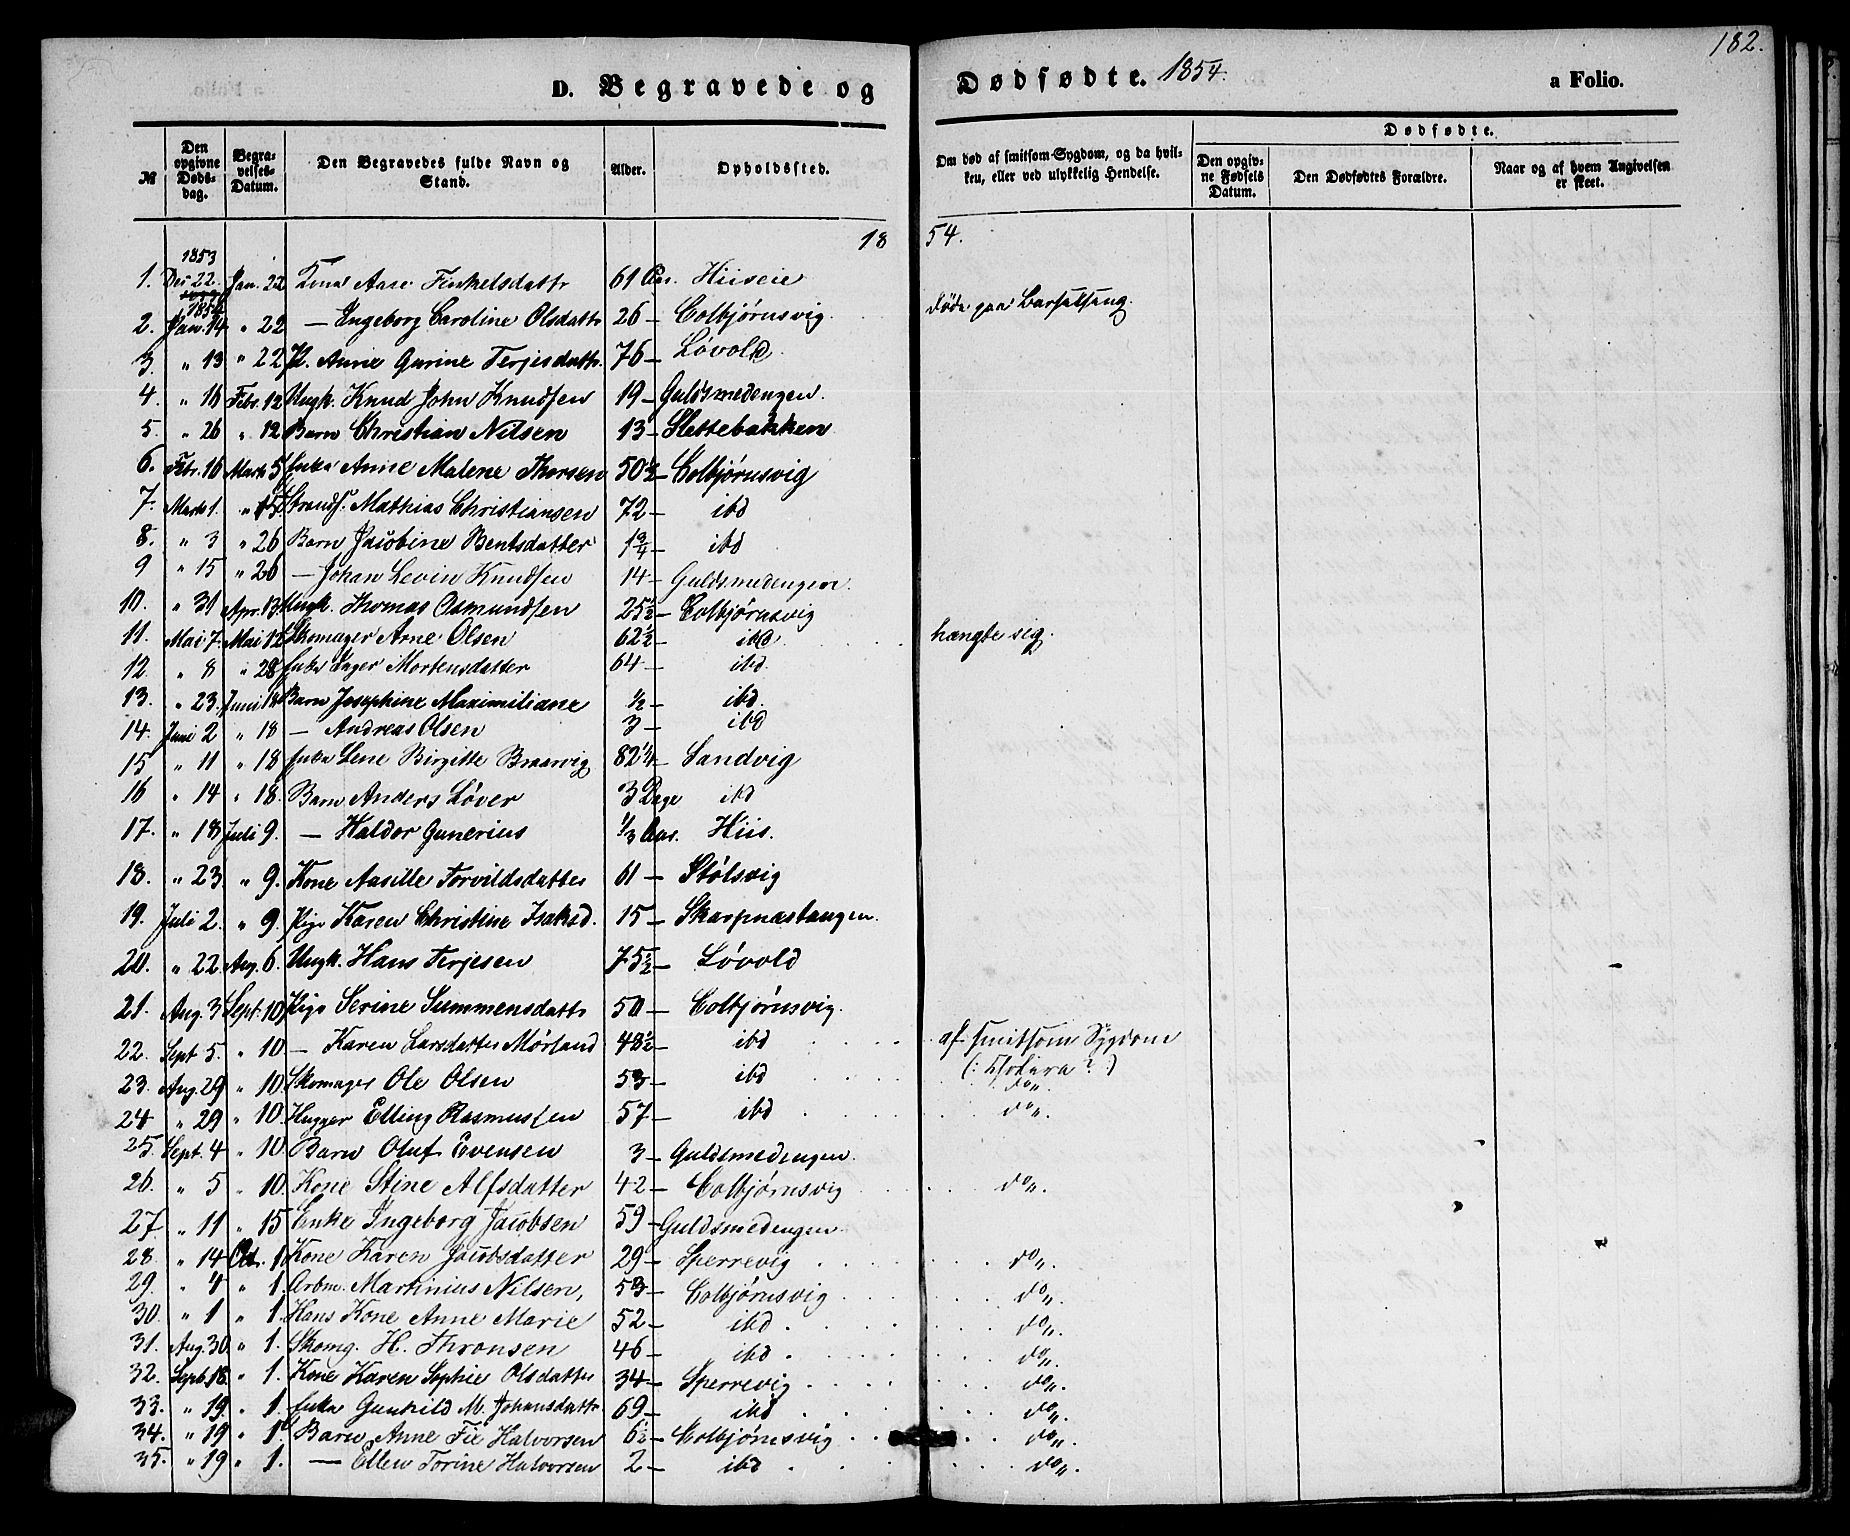 182.
D. Begravede og Dødfødte. 1854. a Folio.
№
Den opgivne Døds-dag.
Begra-velses-Datum.
Den Begravedes fulde Navn og Stand.
Alder.
Opholdssted.
Om død af smitsom Sygdom, og da hvil-ken, eller ved ulykkelig Hendelse.
Dødfødte.
Den opgiv-ne Fødsels Datum.
Den Dødfødtes Forældre.
Naar og af hvem Angivelsen er skeet.
1854.
1853
1. Dec 22. Jan. 22 Kone Aase Finkelsdattr 61 Aar. Hiiseie
1854
2. Jan. 14 " 22 — Ingeborg Caroline Olsdattr 26 — Colbjørnsvig. døde paa Barselseng.
3. " 13 " 22 P. Anne Gurine Terjesdattr. 76 — Løvold
4. " 16 Febr. 12 Ungk. Knud John Knudsen 19 — Guldsmedengen.
5. " 26 " 12 Barn Christian Nilsen 13 — Slettebakken
6. Febr. 16 Marts 5 Enke Anne Malene Thorsen 50½ — Colbjørnsvig
7. Marts 1. " 15 Strands. Mathias Christiansen 72 — ibd
8. " 3 " 26 Barn Jacobine Bentsdatter 1¾ — ibd
9 " 15 " 26 — Johan Levin Knudsen 14 — Guldsmedengen.
10. " 31 Apr. 13 Ungk. Thomas Osmundsen 25½ — Colbjørnsvig
11. Mai 7. Mai 12 Skomager Arne Olsen 62½ — ibd hængte sig.
12 " 8 " 28 Enke Inger Mortensdatter 64 — ibd.
13. " 23. Juni 18 Barn Josephine Maximiliane ½ — ibd.
14. Juni 2 " 18 — Andreas Olsen 3 — ibd
15 " 11 " 18 Enke Lene Birgitte Braarvig 82¼ — Sandvig
16 " 14 " 18. Barn Anders Løver 3 Dage ibd
17. " 18 Juli 9. — Haldor Gunerius ⅓ Aar. Hiis.
18. " 23. " 9. Kone Aasille Torvildsdatter 61 — Stølsvig
19. Juli 2. " 9. Pige Karen Christine Isaksd. 15 — Skarpnæstangen.
20. " 22 Aug. 6. Ungk. Hans Terjesen 75½ — Løvold
21. Aug. 3 Sept. 10 Pige Serine Summensdattr 50 — Colbjørnsvig.
22. Sept 5. " 10 — Karen Larsdatter Mørland 48½ — ibd af smitsom Sygdom (: Cholera ? :)
23. Aug. 29 " 10. Skomager Ole Olsen 53 — ibd do".
24 " 29 " 10. Hugger Elling Rasmussen 57 — ibd do".
25. Sept. 4 " 10 Barn Oluf Evensen 3 — Guldsmedengen.
26. " 5 " 10. Kone Stine Alfsdatter 42 — Colbjørnsvig do".
27. " 11 " 15 Enke Ingeborg Jacobsen 59 — Guldsmedengen
28. " 14 Oct. 1 Kone Karen Jacobsdatter 29 — Sperrevig do".
29. " 4 " 1. Arbm. Martinius Nilsen, 53 — Colbjørnsvig do".
30. " 1 " 1. Hans Kone Anne Marie 52 — ibd. do".
31. Aug. 30 " 1. Skomg. H. Thronsen 46 — ibd. do".
32. Septb. 18. " 1. Kone Karen Sophie Olsdatter 34 — Sperrevig do".
33. " 19. " 1. Enke Gunhild M. Johansdattr 69 — ibd do".
34. " 19 " 1. Barn Anne Fie Halvorsen 6½ — Colbjørnsvig do".
35. " 19 " 1. — Ellen Torine Halvorsen 2 — ibd do".